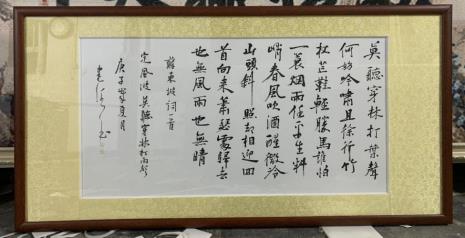 莫聽穿林打葉聲
何妨吟嘯且徐行竹
杖芒鞋輕勝馬誰怕
一蓑烟雨任平生料
峭春風吹酒醒微冷
山頭斜照却相迎回
首向来蕭瑟處歸去
也無風雨也無晴
蘇東坡詞一首
定風波莫聽穿林打葉聲
庚子年夏月